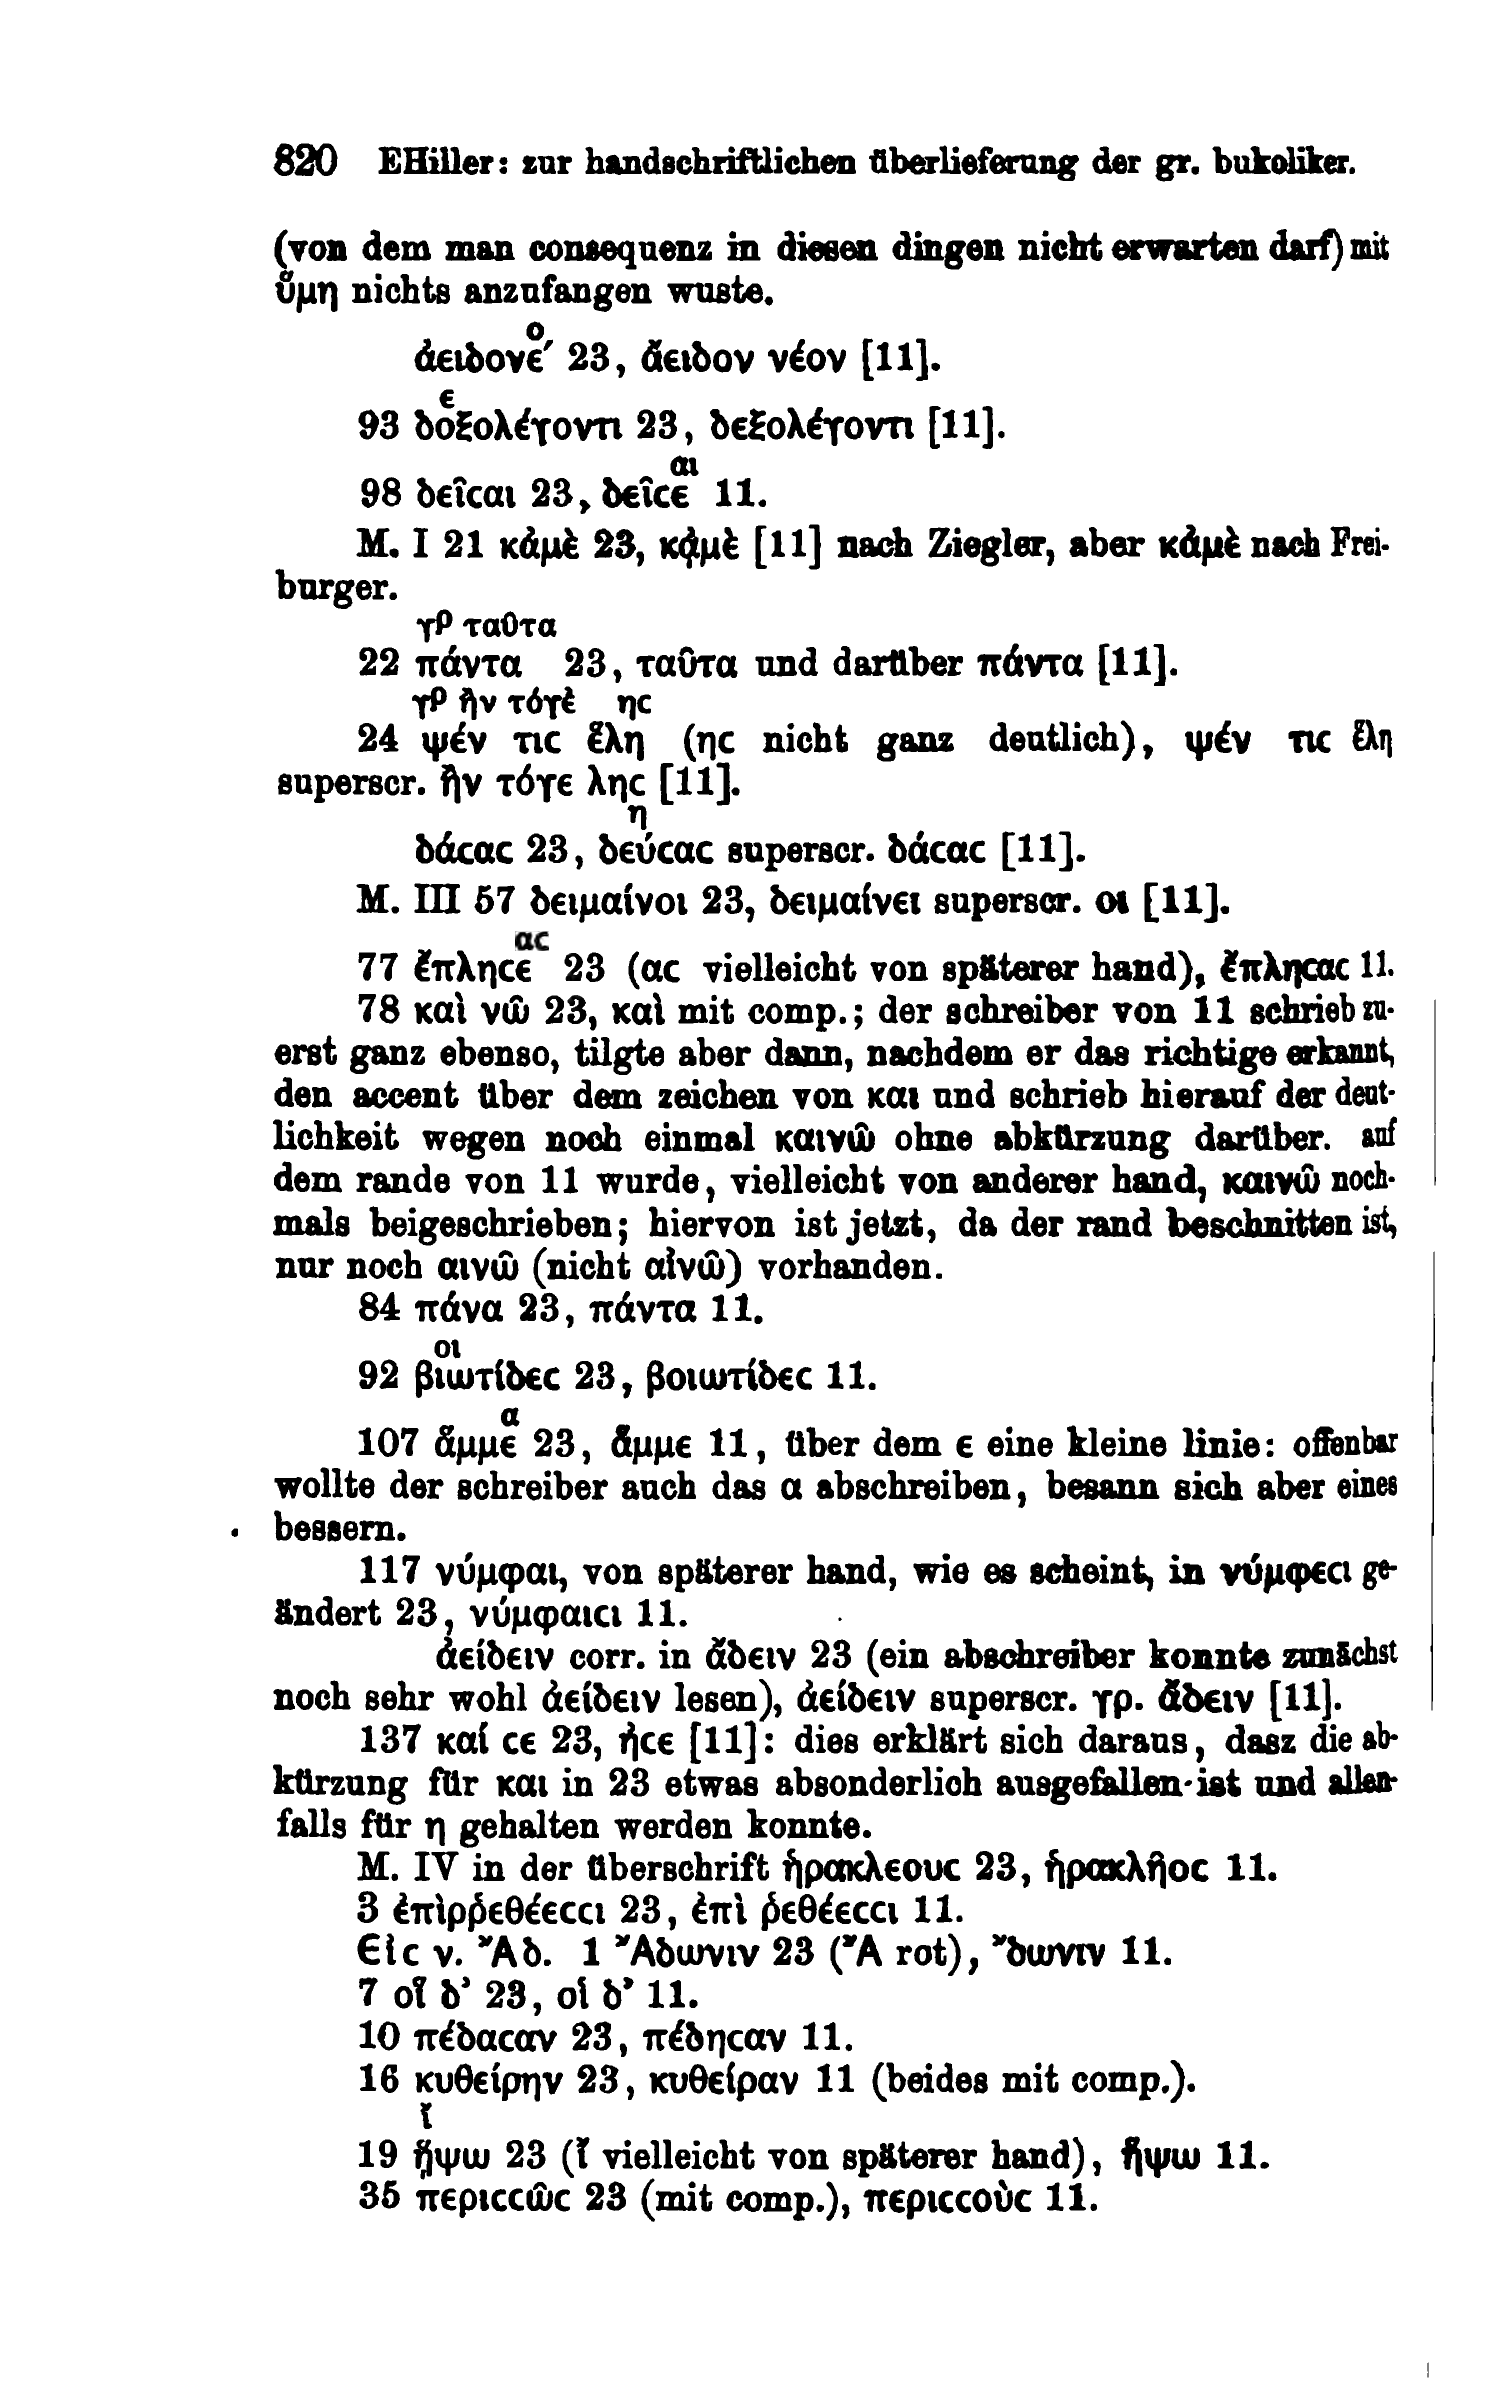 820 EHiller: zur handschriftlichen überlieferung der gr. bukoliker.
(von dem man consequenz in diesen dingen nicht erwarten darf) mit
ὕμη nichts anzufangen wuste.
ο
ἀειδονέ 23, ἄειδον νέον [11].
ε
93 δοξολέγοντι 23, δεξολέγοντι [11].
αι
98 δεῖcαι 23, δεῖcε 11.
M. I 21 κἀμὲ 23, κᾀμὲ [11] nach Ziegler, aber κἀμὲ nach Frei-
burger.
γρ ταῦτα
22 πάντα 23, ταῦτα und darüber πάντα [11].
γρ ἢν τόγὲ ηc
24 ψέν τιc ἕλη (ηc nicht ganz deutlich), ψέν τιc ἕλη
superscr. ἢν τόγε ληc [11].
η
δάcαc 23, δεύcαc superscr. δάcαc [11].
M. III 57 δειμαίνοι 23, δειμαίνει superscr. οι [11].
αc
77 ἔπληcε 23 (αc vielleicht von späterer hand), ἔπληcαc 11.
78 καὶ νῶ 23, καὶ mit comp.; der schreiber von 11 schrieb zu-
erst ganz ebenso, tilgte aber dann, nachdem er das richtige erkannt,
den accent über dem zeichen von και und schrieb hierauf der deut-
lichkeit wegen noch einmal καινῶ ohne abkürzung darüber. auf
dem rande von 11 wurde, vielleicht von anderer hand, καινῶ noch-
mals beigeschrieben; hiervon ist jetzt, da der rand beschnitten ist,
nur noch αινῶ (nicht αἰνῶ) vorhanden.
84 πάνα 23, πάντα 11.
οι
92 βιωτίδεc 23, βοιωτίδεc 11.
α
107 ἄμμε 23, ἄμμε 11, über dem ε eine kleine linie: offenbar
wollte der schreiber auch das α abschreiben, besann sich aber eines
bessern.
117 νύμφαι, von späterer hand, wie es scheint, in νύμφεcι ge-
ändert 23, νύμφαιcι 11.
ἀείδειν corr. in ᾄδειν 23 (ein abschreiber konnte zunächst
noch sehr wohl ἀείδειν lesen), ἀείδειν superscr. γρ. ᾄδειν [11].
137 καί cε 23, ἠcε [11]: dies erklärt sich daraus, dasz die ab-
kürzung für και in 23 etwas absonderlich ausgefallen ist und allen-
falls für η gehalten werden konnte.
M. IV in der überschrift ἡρακλεουc 23, ἡρακλῆοc 11.
3 ἐπὶρῥεθέεccι 23, ἐπὶ ῥεθέεccι 11.
Εἰc ν. Ἄδ. 1 Ἄδωνιν 23 (Ἄ rot), Ὄδωνιν 11.
7 οἳ δ’ 23, οἱ δ’ 11.
10 πέδαcαν 23, πέδηcαν 11.
16 κυθείρην 23, κυθείραν 11 (beides mit comp.).
ἴ
19 ᾕψω 23 (ἴ vielleicht von späterer hand), ἥψω 11.
35 περιccῶc 23 (mit comp.), περιccοὺc 11.